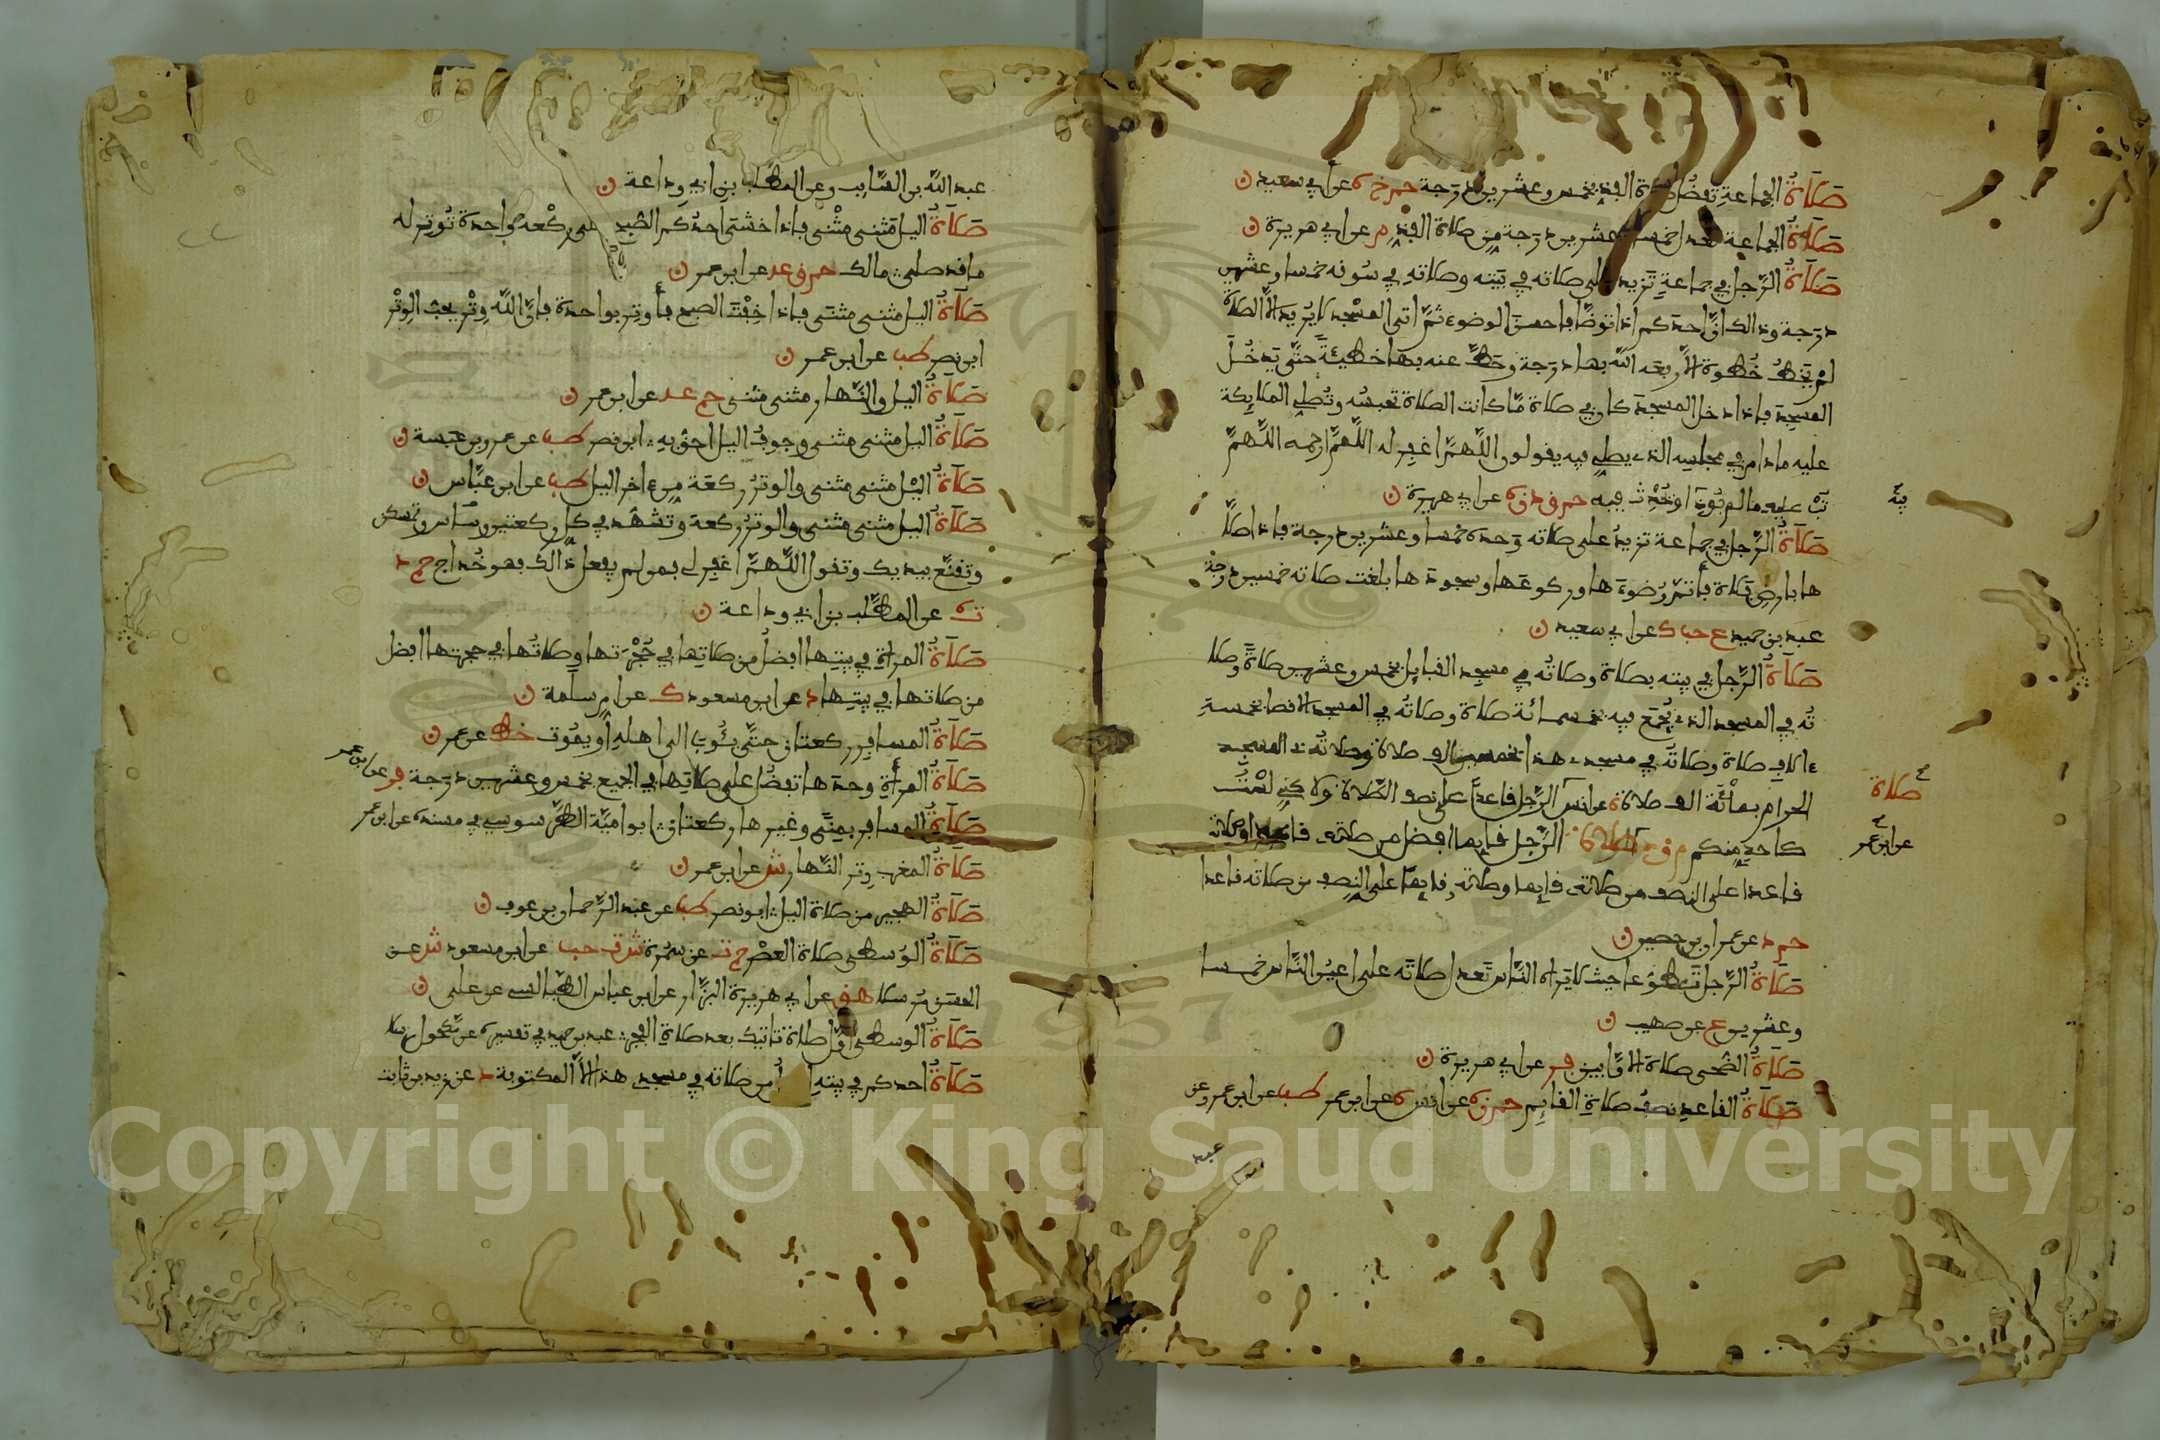 صَلَاةُ الجماعةِ تفضُل صلاة الفذ بخمس وعشرين درجة حم خ ه عن ابي سعيد ن
صَلَاةُ الجماعة تعدل خمسا وعشرين درجة من صلاة الفذ م عن ابي هريرة ن
صَلَاةُ الرَّجل في جماعةٍ تزيد على صلاته في بيته وصلاته في سُوقه خمسا وعشرين
درجة وذالك انَّ احدكم اذا توضَّأ فاحسن الوضوء ثمَّ اتى المسْجد لا يُريد الَّا الصلاة
لم يَخْطُ خُطوة الَّا رفعه اللَّه بها درجة وحَطَّ عنه بها خطيئة حتَّى يَدخُل
المسجد فاذا دخل المسجد كان في صلاة مَّا كانت الصلاة تحبسُه وتُصلِّي الملايكة
عليه مادام في مجلسه الذي يصلي فيه يقولون اللَّهمَّ اغفِر له اللَّهمَّ ارحمه اللَّهمَّ
تُبْ عليه ما لم يُوذِ او يُحْدِث فيه حم ق د ه عن ابي هريرة ن
فيه
صَلَاةُ الرَّجل في جماعة تزيدُ على صلاته وَحده خمسا وعشرين درجة فاذا صلَّا
ها بارضِ فَلاة فأتمَّ وُضوءَها وركوعَها وسجودَها بلغت صلاته خمسين درجة
عبد بن حميد ع حب ك عن ابي سعيد ن
صَلَاةُ الرَّجل في بيته بصلاة وصلاتُه في مسجد القبايل بخمس وعشرين صلاةً وصلا
تُه في المسجد الذي يُجمَع فيه بخمسمائة صلاة وصلاتُه في المسجد الاقصا بخمسةِ
ءالافِ صلاة وصلاتُه في مسجدي هذا بخمسين الف صلاة وصلاتُه في المسجد
الحرام بمائة الف صلاة ه عن انس الرَّجل قاعداً على نصف الصَّلاة ولاكنِّي لسْتُ
صلاة
كاحدٍ منكم م د ن صلاة الرَّجل قايما افضل من صلاته قاعدا وصلاته
عن ابن عمر
قاعدا على النصف من صلاته قايما وصلاته نايمًا على النصف من صلاته قاعدا
حم د عن عمران بن حصين ن
صَلَاةُ الرَّجل تَطوُّعا حيث لا يَراه النَّاس تَعدل صلاتَه على اعيُن النَّاس خمسا
وعشرين ع عن صهيب ن
صَلَاةُ الضُّحى صلاة الاوَّابين فر عن ابي هريرة ن
صَلَاةُ القاعدِ نصفُ صلاةِ القايِم حم ن ه عن انس ه عن ابن عمرو طب عن ابن عمر وعن
عبد
عبد اللَّه بن السَّايب وعن المطَّلب بن ابي وداعة ن
صَلَاةُ اليل مَثنى مثْنى فاذا خشى احدُكم الصُّبح صلى ركْعه واحدة تُوتر له
ما قد صلى مالك حم ق عد عن ابن عمر ن
صَلَاةُ اليل مثنى مثنى فاذا خِفْتَ الصبح فأوتر بواحدة فإنَّ اللَّه وِتْر يحبُّ الوِتْر
ابن نصر طب عن ابن عمر ن
صَلَاةُ اليل والنَّهار مثنى مثنى حم عد عن ابن عمر ن
صَلَاةُ اليل مثنى مثنى وجوفُ اليل احقُّ بِهِ ابن نصر طب عن عمرو بن عبسة ن
صَلَاةُ اليْل مثنى مثنى والوترُ ركعَة من ءاخر اليل طب عن ابن عبَّاس ن
صَلَاةُ اليل مثنى مثنى والوترُ ركعة وتشهُّد في كل ركعتين وتباس وتمسكن
وتقنَّع بيديك وتقول اللَّهمَّ اغفِر لي فمن لم يفعل ذالك فهو خُداج حم د
ت ه عن المطَّلب بن ابي وداعة ن
صَلَاةُ المرأةِ في بيتِها افضلُ من صلاتِها في حُجْرَتها وصلاتُها في حجرتها افضل
من صلاتها في بيتِها د عن ابن مسعود ك عن ام سلَمة ن
صَلَاةُ المسافِر ركعتان حتَّى يئُوب الى اهله أو يمُوت خط عن عمر ن
صَلَاةُ المرأةِ وحدَها تفضُل على صلاتِها في الجميع بخمس وعشرين درجة فر عن ابن عمر
صَلَاةُ المسافر بمِنًى وغيرها ركعتان ابو اميَّة الطَّرَسوسي في مسنده عن ابن عمر
صَلَاةُ المغرب وتر النَّهار ش عن ابن عمر ن
صَلَاةُ الهجير من صلاة اليل ابو نصر طب عن عبد الرَّحمان بن عوف ن
صَلَاةُ الوُسطى صلاة العصْر حم ت عن سمُرة ش ت حب عن ابن مسعود ش عن
الحسن مُرسلا هق عن ابي هريرة البزَّار عن ابن عباس الطَّيالسي عن على ن
صَلَاةُ الوسطى اوَّل صلاة تاتيك بعد صلاةِ الفجر عبد بن حميد في تفسيره عن مَّكحول مرسلا
صَلَاةُ احدكم في بيته من صلاته في مسجدي هذا الَّا المكتوبة د عن زيد بن ثابت